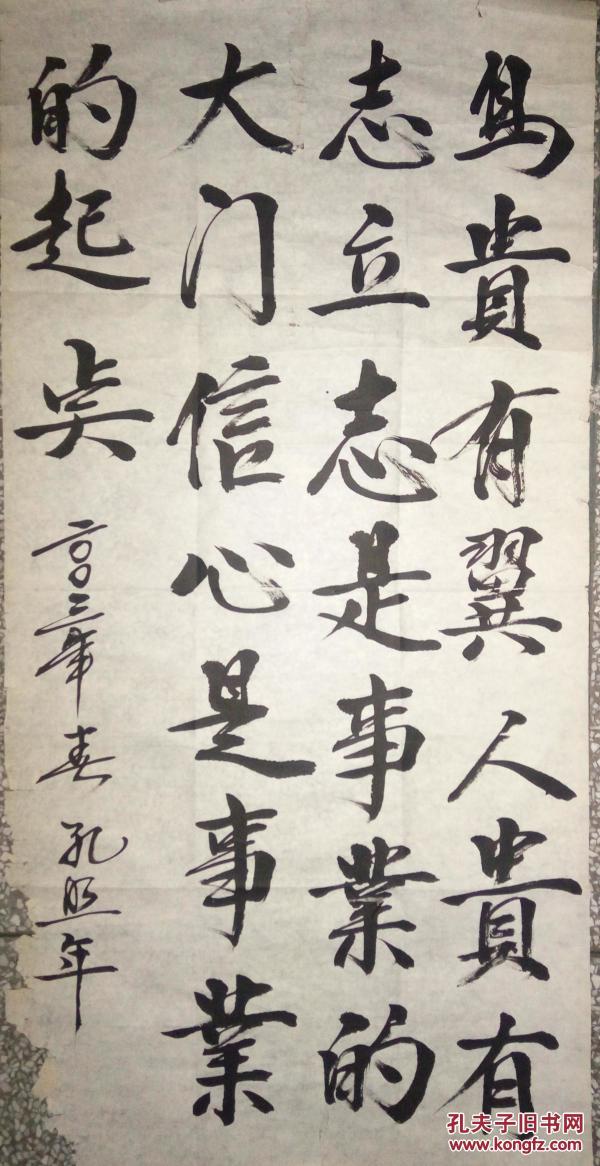 鳥貴有翼人貴有
志立志是事業的
大门信心是事業
的起点
二〇〇三年春 孔照年
孔夫子旧书网
www.kongfz.com